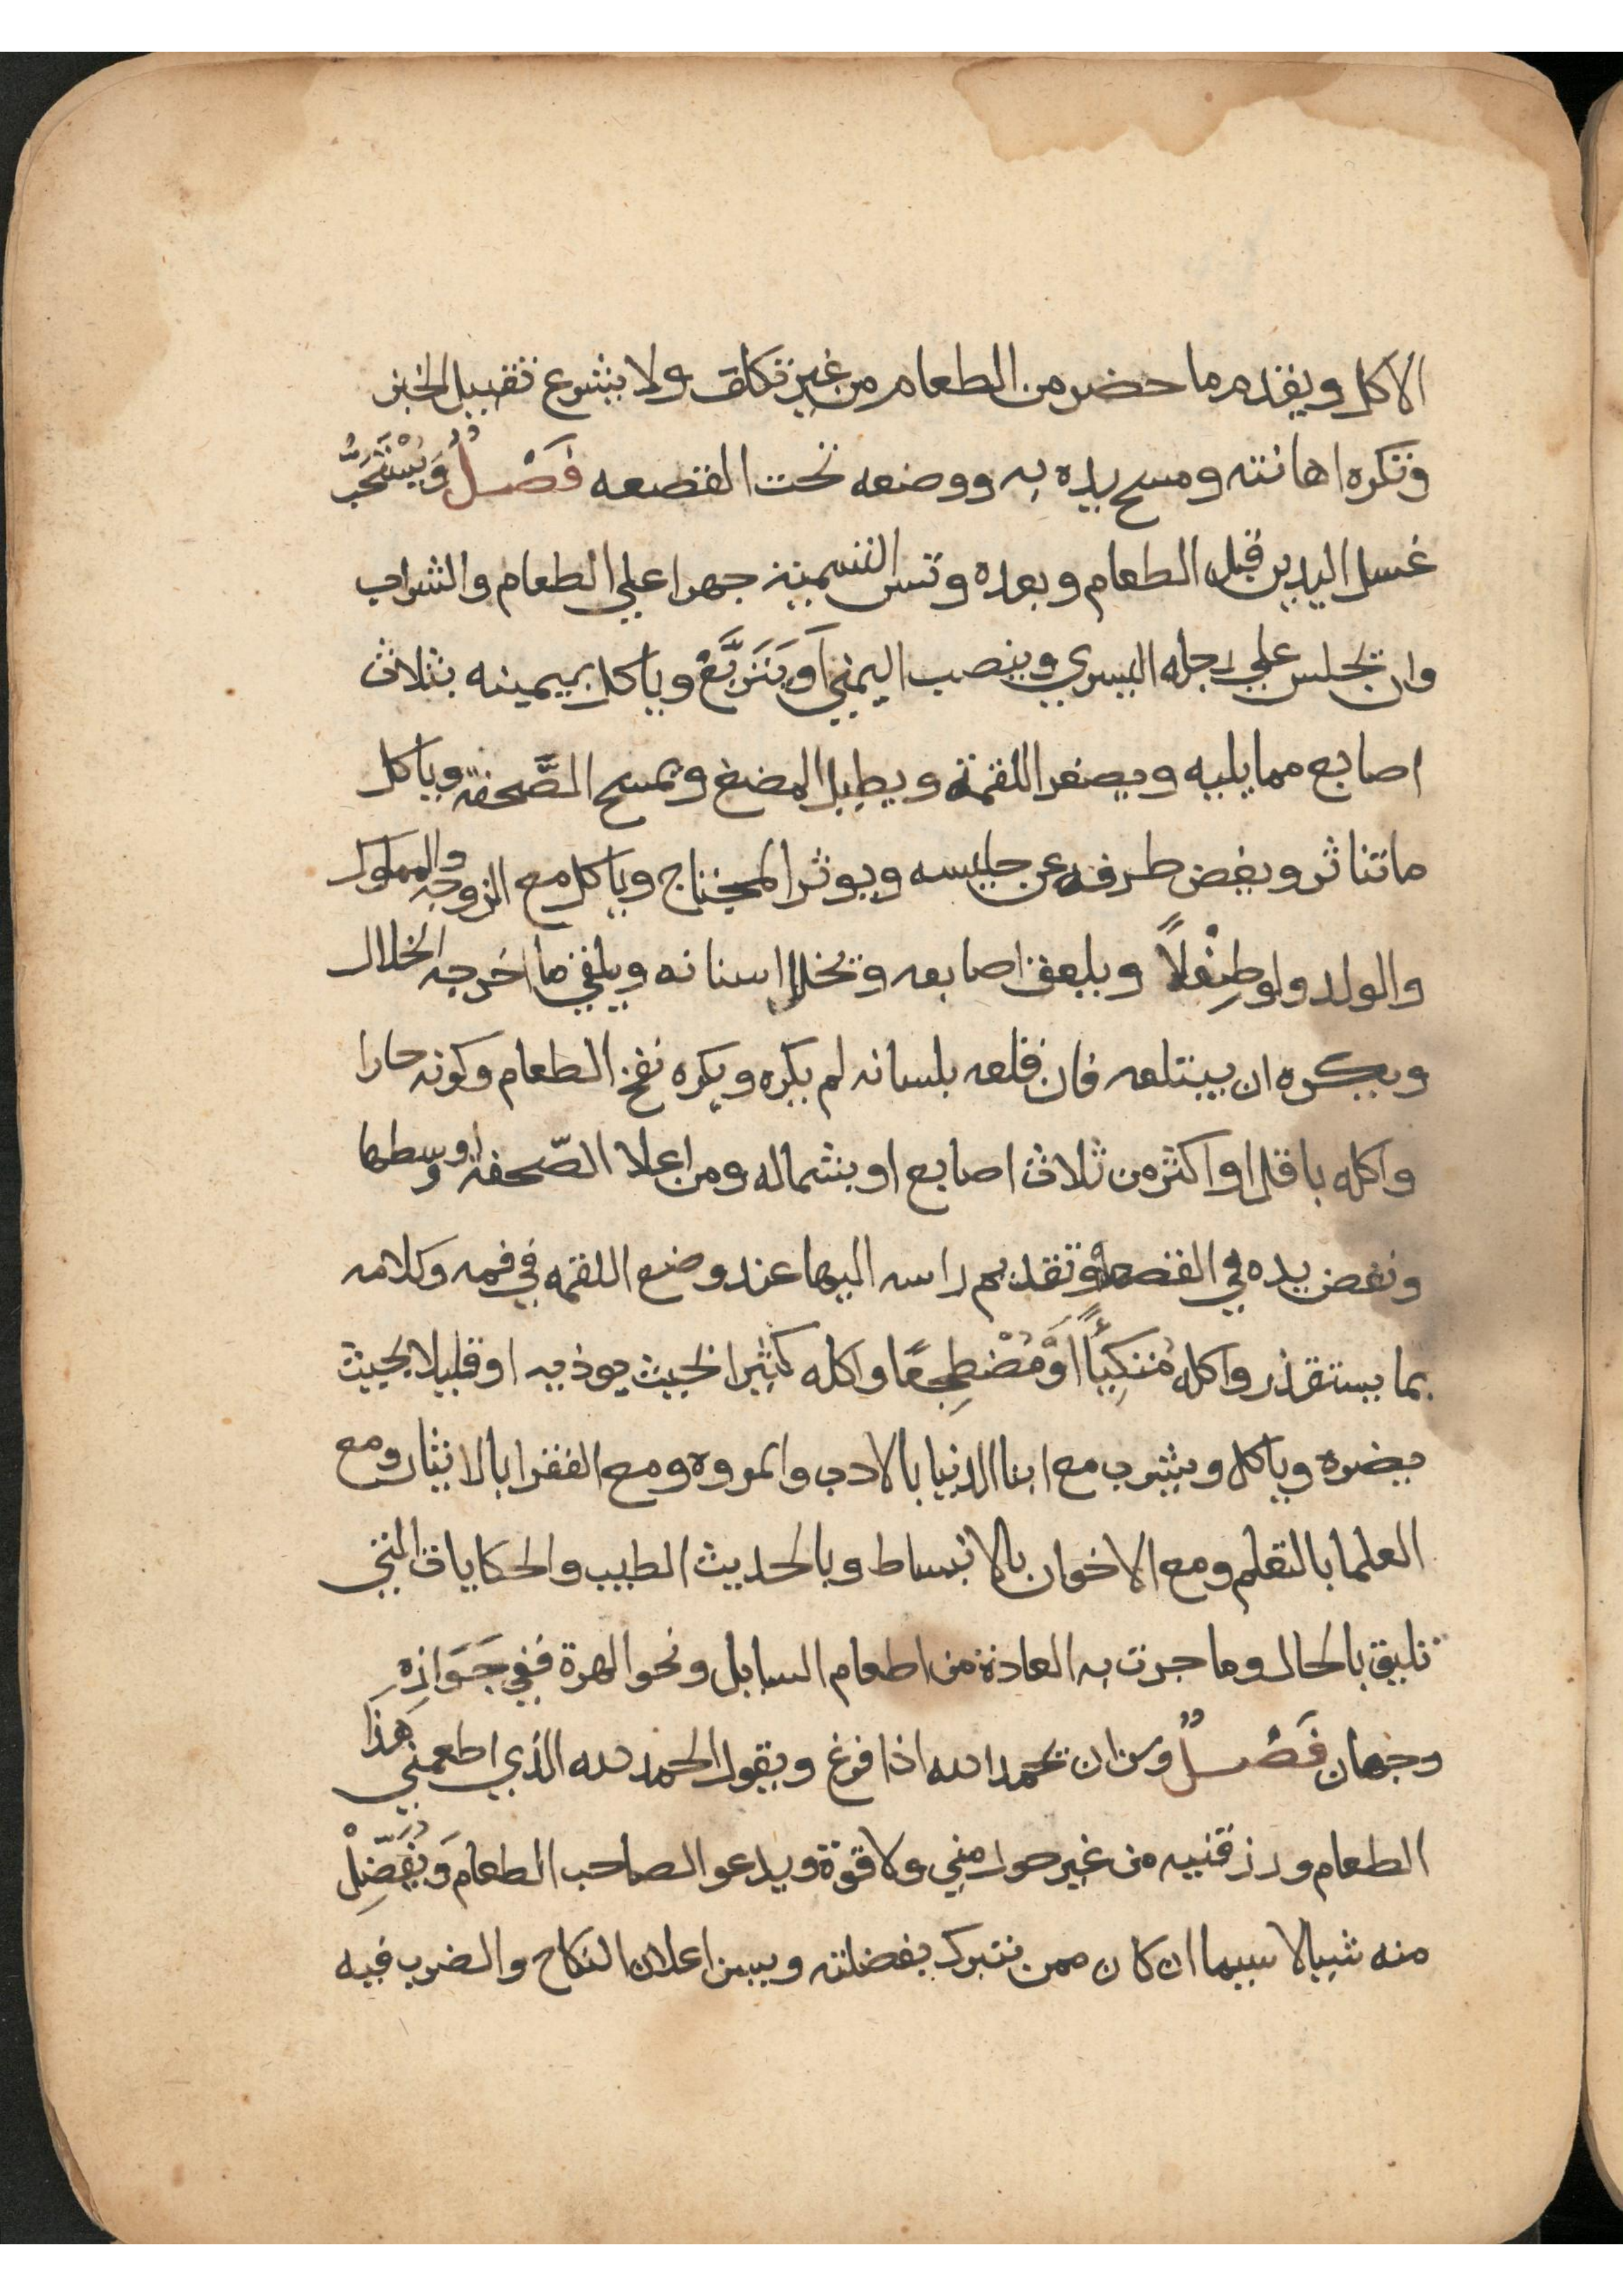 الاكل ويقدم ما حضر من الطعام من غير تكلف ولا يشرع تقبيل الخبز
وتكره اهانته ومسح يده به ووضعه تحت القصعه فَصْلٌ وَيُسْتَحَبُّ
غسل اليدين قبل الطعام وبعده وتسن التسمية جهرا علي الطعام والشراب
وان يجلس علي رجله اليسري وينصب اليمني اَو يَتَرَبَّعْ وياكل بيمينه بثلاث
اصابع مما يليه ويصغر اللقمة ويطيل المضغ ويمسح الصَّحفة وياكل
ما تناثر ويغض طرفه عن جليسه ويوثر المحتاج وياكل مع الزوجه والمملوك
والولد ولو طِفْلاً ويلعق اصابعه ويخلل اسنانه ويلقي ما اخرجه الخلال
ويكره ان يبتلعه فان قلعه بلسانه لم يكره ويكره نفخ الطعام وكونه حارا
واكله باقل او اكثر من ثلاث اصابع او بشماله ومن اعلا الصّحفة او وسطها
ونفض يده في القصعة وتقديم راسه اليها عند وضع اللقمه في فمه وكلامه
بما يستقذر واكله مُتكِئاً اَوْ مُضْطَجِعًا واكله كثيرا بحيث يوذيه او قليلا بحيث
يضره وياكل ويشرب مع ابنا الدنيا بالادب والمروه ومع الفقرا بالايثار ومع
العلما بالتعلم ومع الاخوان بالانبساط وبالحديث الطيب والحكايات التي
تليق بالحال وما جرت به العادة من اطعام السايل ونحو الهرة ففي جَوَازِهِ
وجهان فَصْلٌ وسن ان يحمد الله اذا فرغ ويقول الحمد لله الذي اطعمني هَذَا
الطعام ورزقنيه من غير حول مني ولا قوة ويدعو لصاحب الطعام وَيُفَضِّلْ
منه شيا لا سيما ان كان ممن يتبرك بفضلته ويسن اعلان النكاح والضرب فيه